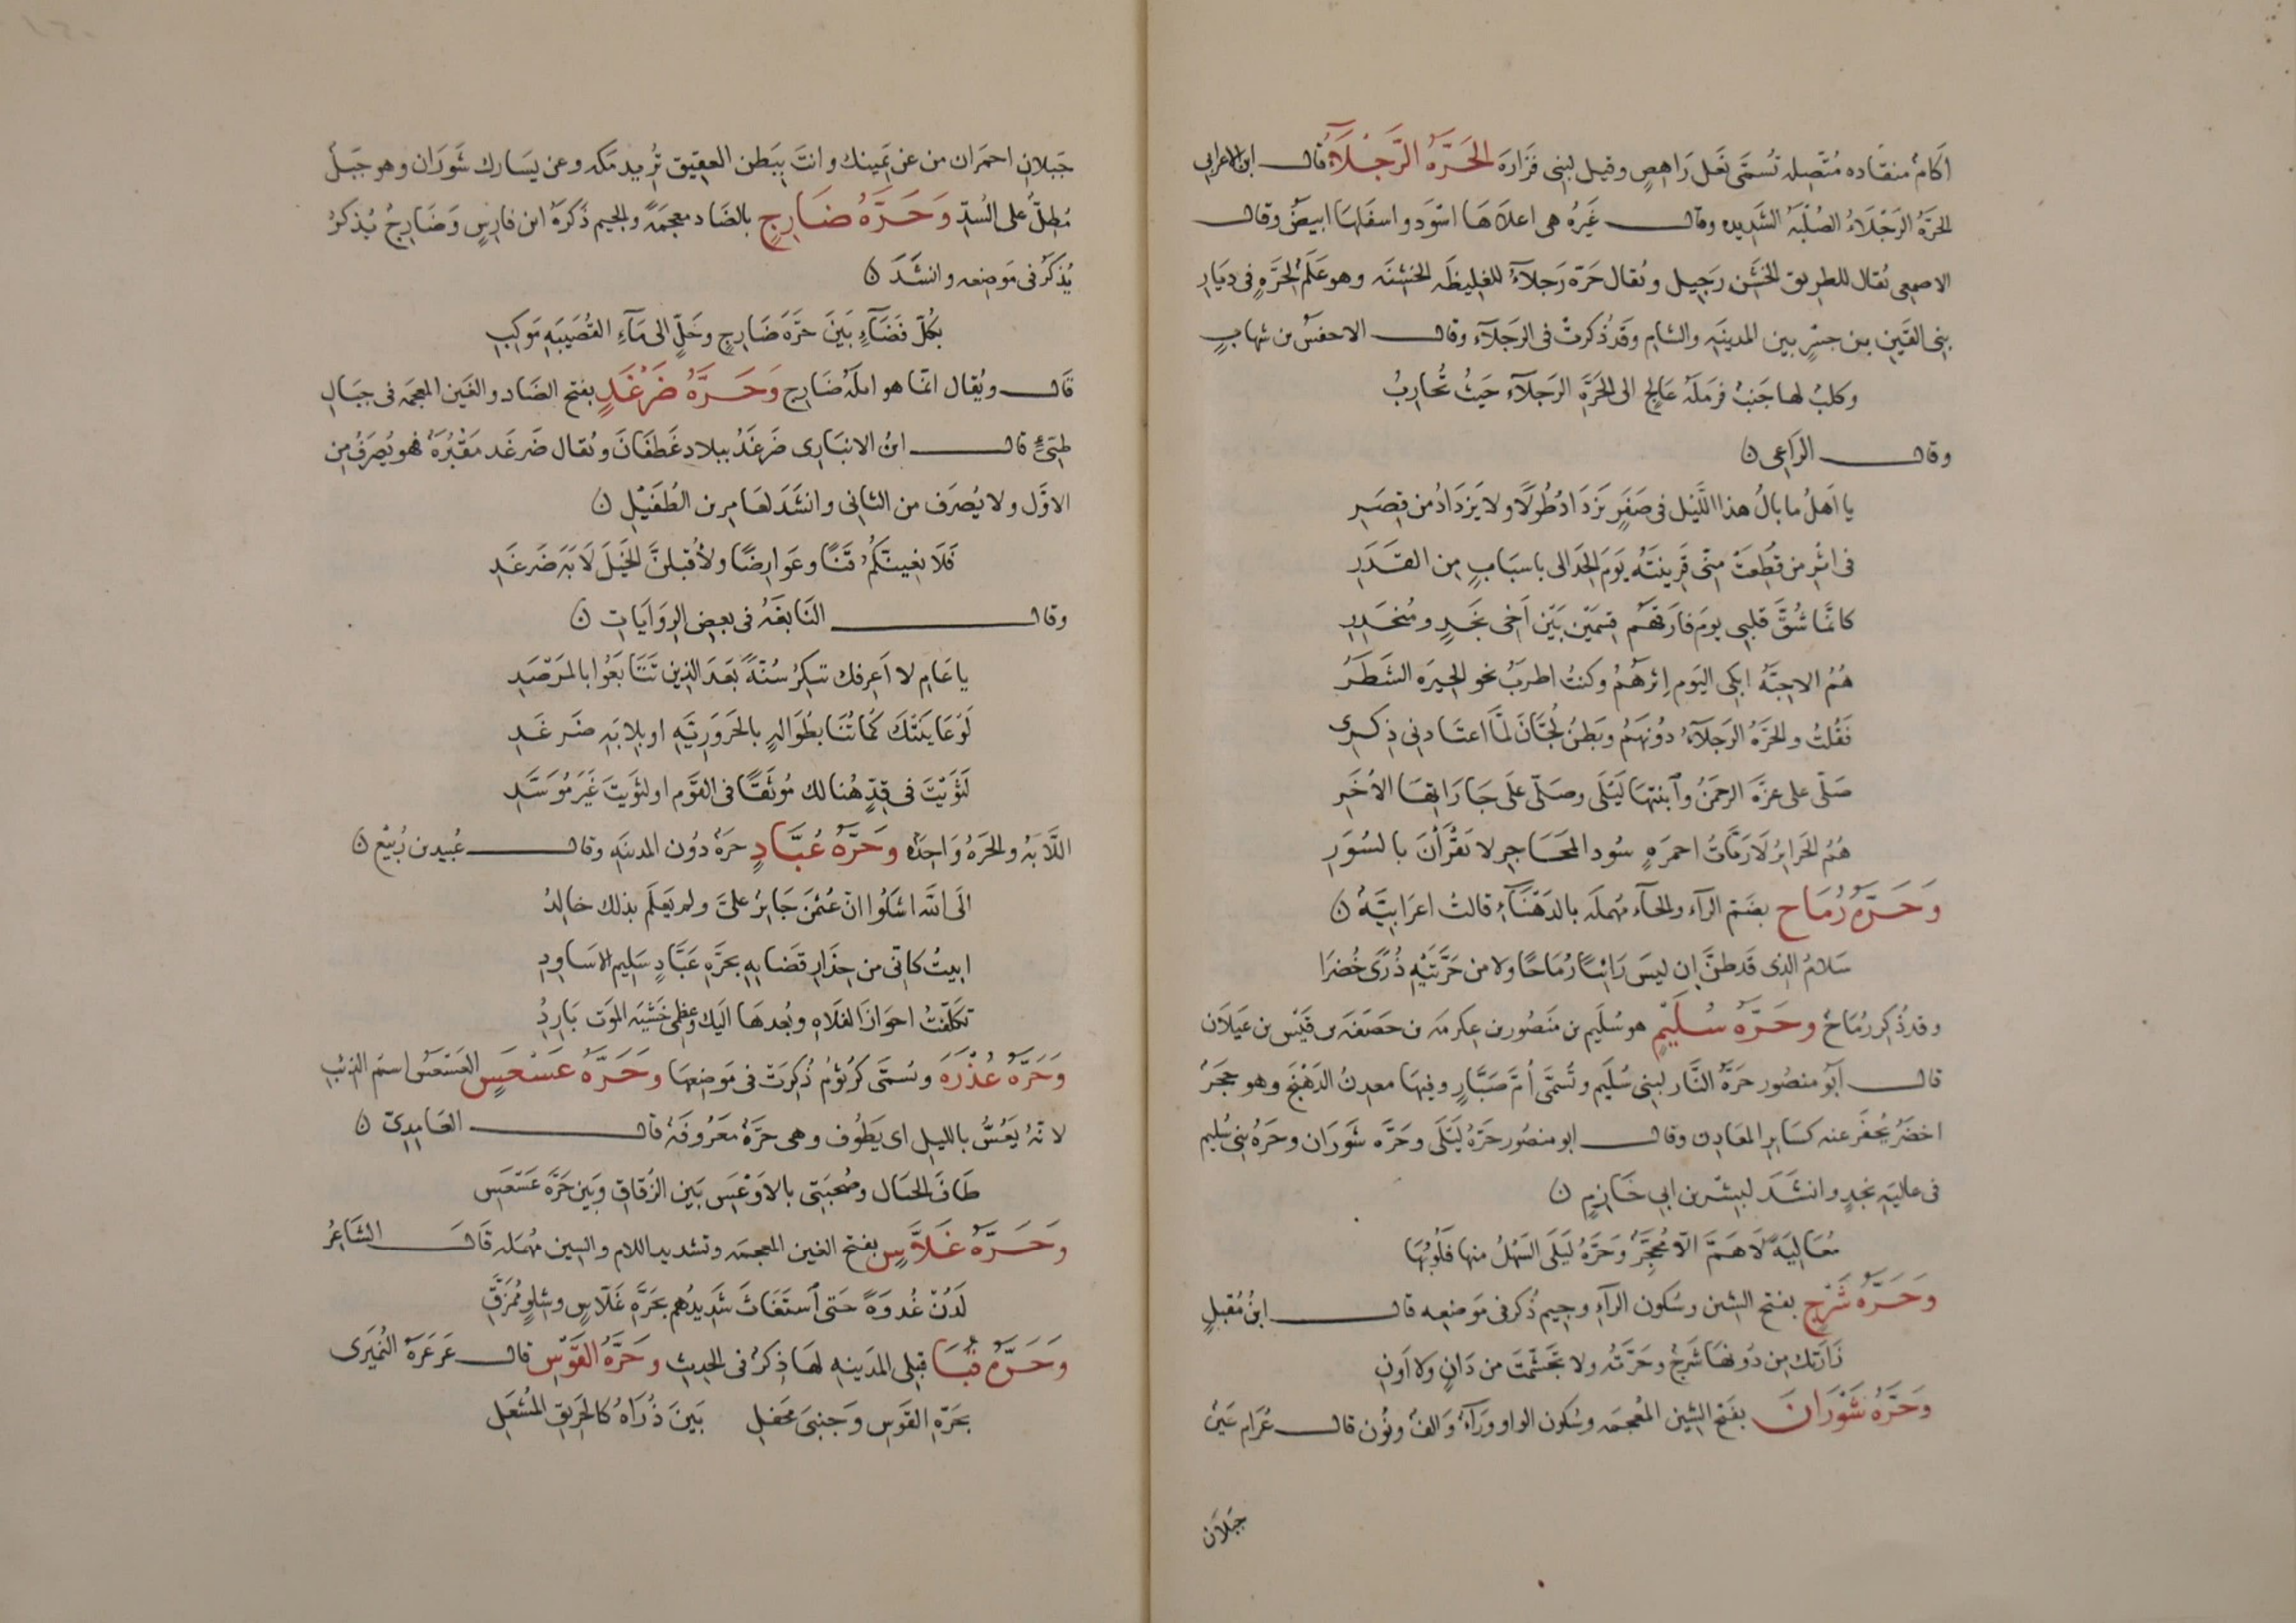 اَكَامٌ منقَاده مُتّصِله تُسَمَّى نَعْل رَاهِصٍ وقيل لبنى فَزَارَة الحَرَّةُ الرَّجْلَآءُ قال ابن الاعرابى
الحَرَّةُ الرَجْلَاءُ الصُلْبَةُ الشَدِيده وقال غَيرُه هى اعلاهَا اسْوَد واسفَلهَا ابيَضُ وقال
الاصمعى يُقال للطرِيق الخَشِن رَجِيل ويُقال حَرّة رَجلآءُ للغليظَه الخشِنَه وهو عَلَمٌ لِحَرَّةٍ فى ديَارِ
بنِى القَينِ بن جسْرٍ بين المدينَهِ والشامِ وقَد ذُكرتْ فى الرَجلَآء وقال الاخنسُ بن شهابٍ
وكلبٌ لها خَبتٌ فرَملَهُ عَالجٍ الى الحَرَّةِ الرَجلآء حَيثُ تُحارِبُ
وقال الرَاعِى ن
يا اَهلُ ما بالُ هذا اللَّيْل فى صَفَرٍ يَزدَادُ طُولًا ولا يَزدَادُ من قِصَرِ
فى اثرِ من قُطِعَتْ مِنّى قَرِينَتُهُ يَومَ الحَدالى باسبَابٍ مِن القَدَرِ
كانمَّا شُقَّ قلبِى يومَ فارَقهُم قِسمَين بَيْنَ اَخِى نَجْدٍ ومُنحَدِرِ
هُمُ الاحِبّهُ ابكِى اليَوم اِثرهُمُ وكنتُ اطربُ نحو الجِيرَه الشَطَرُ
فَقُلتُ والحَرّةُ الرَجلآءُ دُونَهُمُ وبَطنُ لُجَّانَ لمّا اعتَادنِى ذِكَرِى
صَلّى على عزّة الرحمنُ وٱبنتهَا لَيْلَى وصَلّى علَى جَارَاتهَا الاُخَرِ
هُنّ الحَرايرُ لَا رَبّاتُ احمرَهٍ سُود المحَاجرِ لا يَقْرَأنَ بالسُوَرِ
وَحَرَّةُ رُمَاح بضَم الرآء والحآء مُهملَه بالدَهْنَآءِ قالتْ اعرَابيَّهٌ ن
سَلامُ الذِى قَد ظنَّ ان ليسَ رَائِيًا رُمَاحًا ولا من حَرَّتَيْهِ ذُرًى خُضرَا
وقد ذُكِر رُمَاحٌ وحَرَّةُ سُلَيْمٍ هو سُلَيم بن مَنصُور بن عِكرِمَه بن خصَفَه بن قَيْس بن عَيلَان
قال اَبُو منصُور حَرَّةُ النَّار لبنِى سُلَيم وتُسمَّى اُمّ صَبَّارٍ وفيهَا معدِنُ الدَهْنَج وهو حجَرٌ
اخضَرُ يُحفَر عنه كسَايرِ المعَادِن وقال ابو منصُور حَرّةُ لَيْلَى وحَرّه شَورَان وحَرّهُ بنِى سُليم
فى عاليَهِ نجدٍ وانشَدَ لبِشر بن ابِى خَازِمٍ ن
مُعَالِيَةً لَا هَمَّ الّا مُحَجَّرٌ وَحَرّةُ لَيْلَى السَهْلُ منها فلُوبُهَا
وَحَرَّةُ شَرْجٍ بفتح الشين وسُكون الرآءِ وجِيم ذُكر فى مَوضِعه قال ابنُ مُقبِلٍ
زَارَتك مِن دُونهَا شَرجٌ وحَرّتُه ولا تَجَشّمتَ من دَانٍ ولا اَونِ
وَحَرَّةُ شَوْرَانَ بفَتح الشِين المُعجمَه وسُكون الواو ورَآءٌ وَالفٌ ونُون قال عُرَام عَيرٌ
جَبَلَان
جَبَلانِ احمَران من عن يَمِينك وانتَ ببَطن العقِيق تُرِيد مَكه وعن يَسَارك شَورَان وهو جَبَلٌ
مُطِلٌّ على السُدِّ وَحَرَّةُ ضَارِجٍ بالضَاد معجمَهً والجيم ذَكرَهُ ابن فارِسٍ وَضَارِجٌ يُذكرُ
يُذكَرُ فى مَوضِعه وانشَدَ ن
بكُلّ فَضَآءٍ بَيْنَ حَرّهَ ضَارِجٍ وخَلٍّ الى مَآءِ القُصَيبَهِ مَوكِبِ
قال ويُقال انمّا هو اثلَهُ ضَارِجٍ وَحَرَّةُ ضَرْغَدٍ بفتح الضَاد والغَين المعجمَه فى جبَالِ
طيّىءٍ قال ابنُ الانبَارِى ضَرغَدُ ببلاد غَطفَانَ ويُقال ضَرغَد مَقْبُرَهٌ فهو يُصرَفُ مِن
الاوّل ولا يُصرَف من الثانى وانشَدَ لعَامِر بن الطُفَيْلِ ن
فَلَا بغِينّكمُ قَنًا وعَوَارِضًا ولأقبلنَّ الخَيلَ لَابَهَ ضَرغَدِ
وقال النَابغَهُ فى بعض الرِوَايَاتِ ن
يا عَامِ لا اَعرِفك تنكِرُ سُنّةً بَعدَ الذِين تَتَابَعُوا بالمَرْصَدِ
لَو عَايَنَتْكَ كُمَاتُنَا بطُوالهٍ بالحَزوَرِيّهِ او بلابَهِ ضَرغَدِ
لَثوَيْتَ فى قِدٍّ هُنالك مُوثَقًا فى القَومِ او لثوَيتَ غَيرَ مُوَسَّدِ
اللّابَهُ والحَرهُ وَاحِدَه وحَرَّةُ عُبَّادٍ حرَهٌ دُون المدينَهِ وقال عُبيد بن رُبَيْع ن
الَى الله اشكُوا انّ عُثمنَ جَايرٌ علىَّ ولم يَعلَم بذلك خالِدُ
ابيتُ كانّى من حِذَارِ قضَايهِ بحَرَّهِ عَبّادٍ سَلِيم الاسَاوِدِ
تكَلّفتُ احوَازَ الفلَاهِ وبُعدهَا اليك وعظمِى خَشيَه الموَت بَارِدُ
وَحَرَّةُ عُذْرَة وتُسمّى كرتُومُ ذُكِرَتْ فى مَوضِعهَا وحَرَّةُ عَسْعَسٍ العَسْعَسُ اسم الذِئبِ
لانّهُ يَعُسُّ بالليل اى يَطُوف وهى حَرّهٌ مَعرُوفَهٌ قال الغَامِدِىّ ن
طَافَ الخيَال وصُحبَتِى بالاوْعَسِ بَين الزُقاقِ وبَين حَرّهِ عَسْعَسِ
وحَرَّةُ غَلَّاسٍ بفتح الغين المعجمَه وتشديد اللام والسين مُهمَله قال الشَاعِرُ
لَدُنْ غُدوَةً حَتى ٱستَغَاثَ شَدِيدُهم بحَرَّهِ غَلّاسٍ وشِلوٍ مُمَزَّقِ
وَحَرَّةُ قُبَا قبلِى المَدينهِ لهَا ذِكرٌ فى الحدِيث وحَرَّةُ القَوْسِ قال عَرعَرَهُ النُمَيرِى
بحَرّهِ القَوسِ وَجنبَى مَحفلِ بَينَ ذُرَاهُ كالحَرِيقِ المُشعَلِ